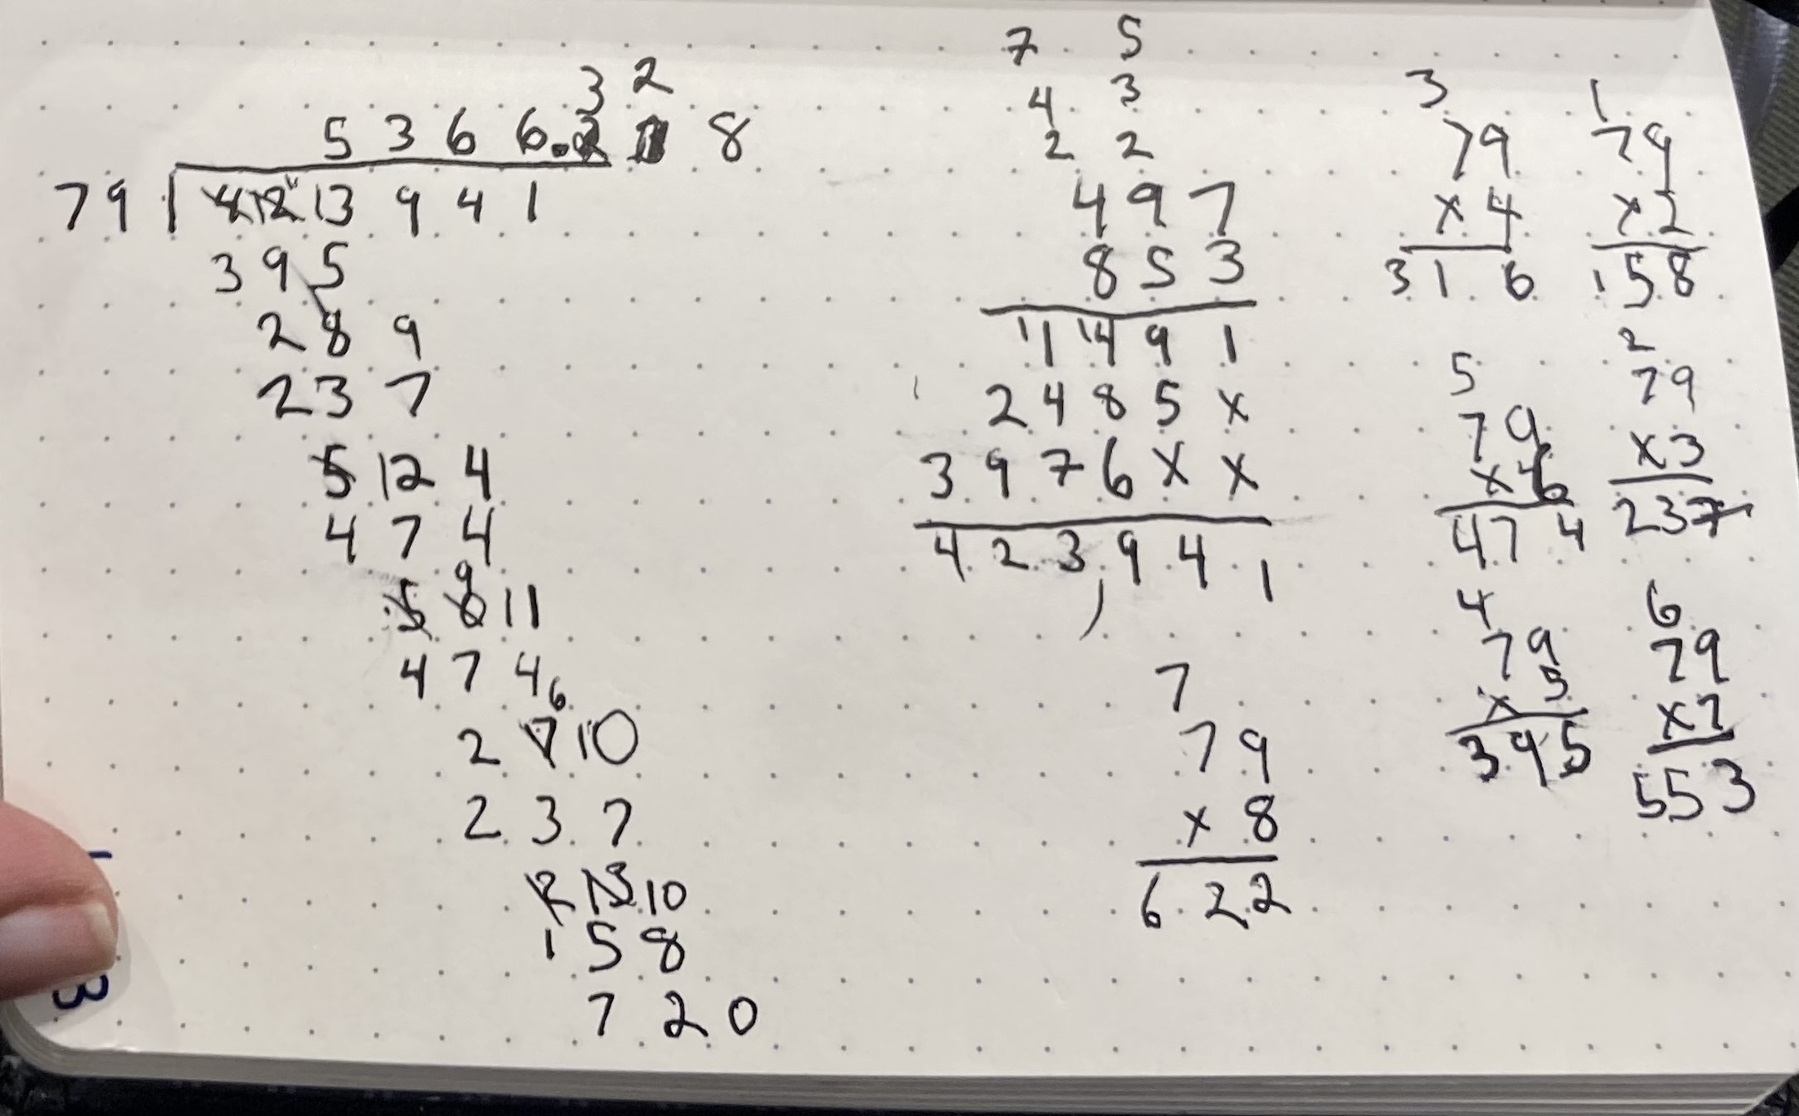 3 2
5 3 6 6 . 8
79 4 12 13 9 4 1
3 9 5
2 8 9
2 3 7
5 12 4
4 7 4
9
5 0 11
4 7 4
6
2 7 10
2 3 7
2 13 10
1 5 8
7 2 0
7 5
4 3
2 2
4 9 7
8 5 3
1 1 14 9 1
2 4 8 5 x
3 9 7 6 x x
4 2 3, 9 4 1
7
7 9
x 8
6 2 2
3
79
x 4
3 1 6
1
79
x 2
158
5
79
x 6
474
2
79
x3
237
4
79
x 5
395
6
79
x7
553
3